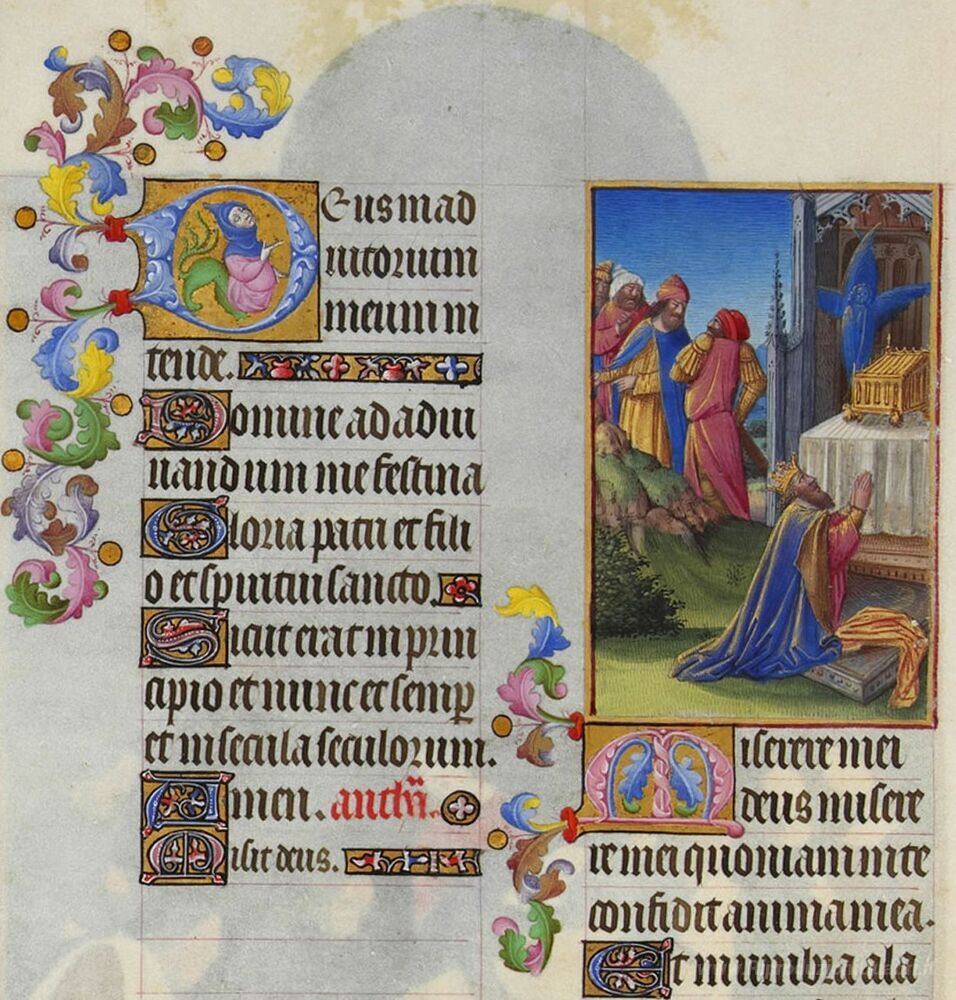 Deus in ad
iutorium
meum in
tende.
Domine ad adiu
uandum me festina
Gloria patri et fili
o et spiritui sancto.
Sicut erat in prin
cipio et nunc et semp
et in secula seculorum.
Amen. anth.
Misit deus.
Miserere mei
deus misere
re mei quoniam in te
confidit anima mea.
Et in umbra ala